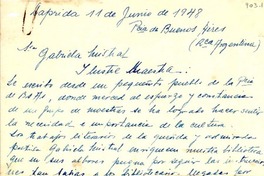 Laprida 11 de Junio de 1948
Pcia de Buenos Aires
(Rca Argentina)
Gabriela Mistral
Ilustre Maestra:
Le escribo desde un pequeño pueblo de la Pcia
de Bs As, donde merced al esfuerzo y constancia
de un grupo de maestros se ha logrado hacer sentir
la necesidad e importancia de la cultura.
Los trabajos literarios de la querida y admirada
poetisa Gabriela Mistral enriquecen nuestra biblioteca
que en sus albores pugna por seguir las